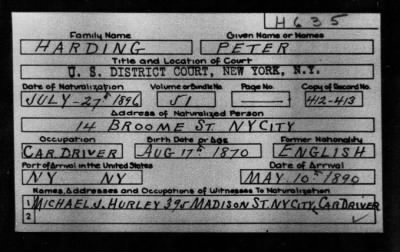 H635
Family Name Given Name or Names
HARDING PETER
Title and Location of Court
U. S. DISTRICT COURT, NEW YORK, N.Y.
Date of Naturalization Volume or Bundle No. Page No. Copy of Record No.
JULY-27th 1896 51 — 412-413
Address of Naturalized Person
14 BROOME ST. NYCITY
Occupation Birth Date or Age Former Nationality
CAR DRIVER AUG 17th 1870 ENGLISH
Port of Arrival in the United States Date of Arrival
NY NY MAY 10th 1890
Names, Addresses and Occupations of Witnesses To Naturalization
1 MICHAEL J. HURLEY 395 MADISON ST. NYCITY, CAR DRIVER
2